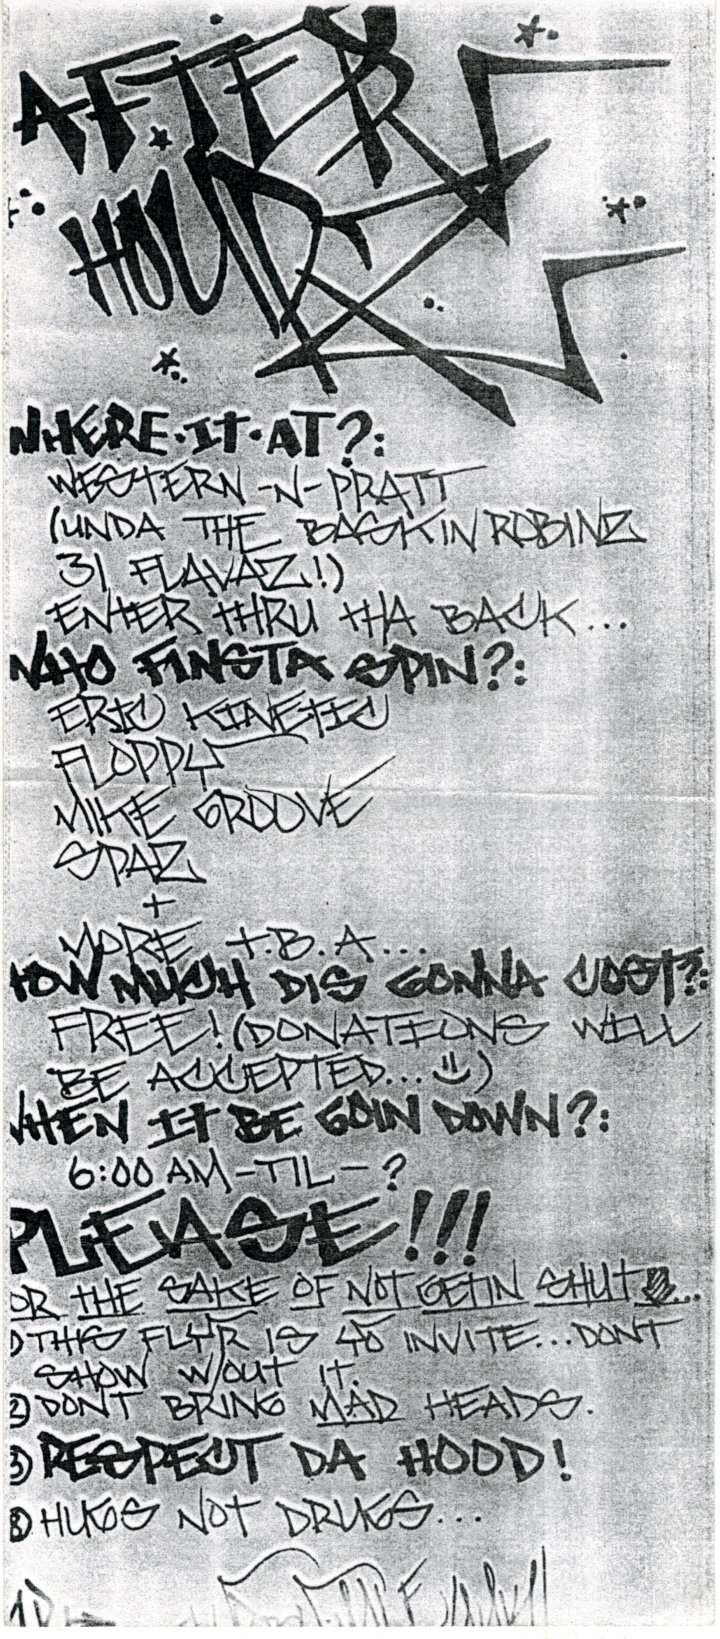 AFTER
HOURZ
WHERE·IT·AT?:
WESTERN-N-PRATT
(UNDA THE BASKIN ROBINZ
31 FLAVAZ!)
ENTER THRU THA BACK...
WHO FINSTA SPIN?:
ERIC KINETIC
FLOPPY
MIKE GROOVE
SPAZ
+
MORE T.B.A...
HOW MUCH DIS GONNA COST?:
FREE! (DONATIONS WILL
BE ACCEPTED...)
WHEN IT BE GOIN DOWN?:
6:00 AM-TIL-?
PLEASE!!!
OR THE SAKE OF NOT GETIN SHUT...
THIS FLYR IS YO INVITE...DONT
SHOW W/OUT IT.
2) DONT BRING MAD HEADS.
3) RESPECT DA HOOD!
HUGS NOT DRUGS...